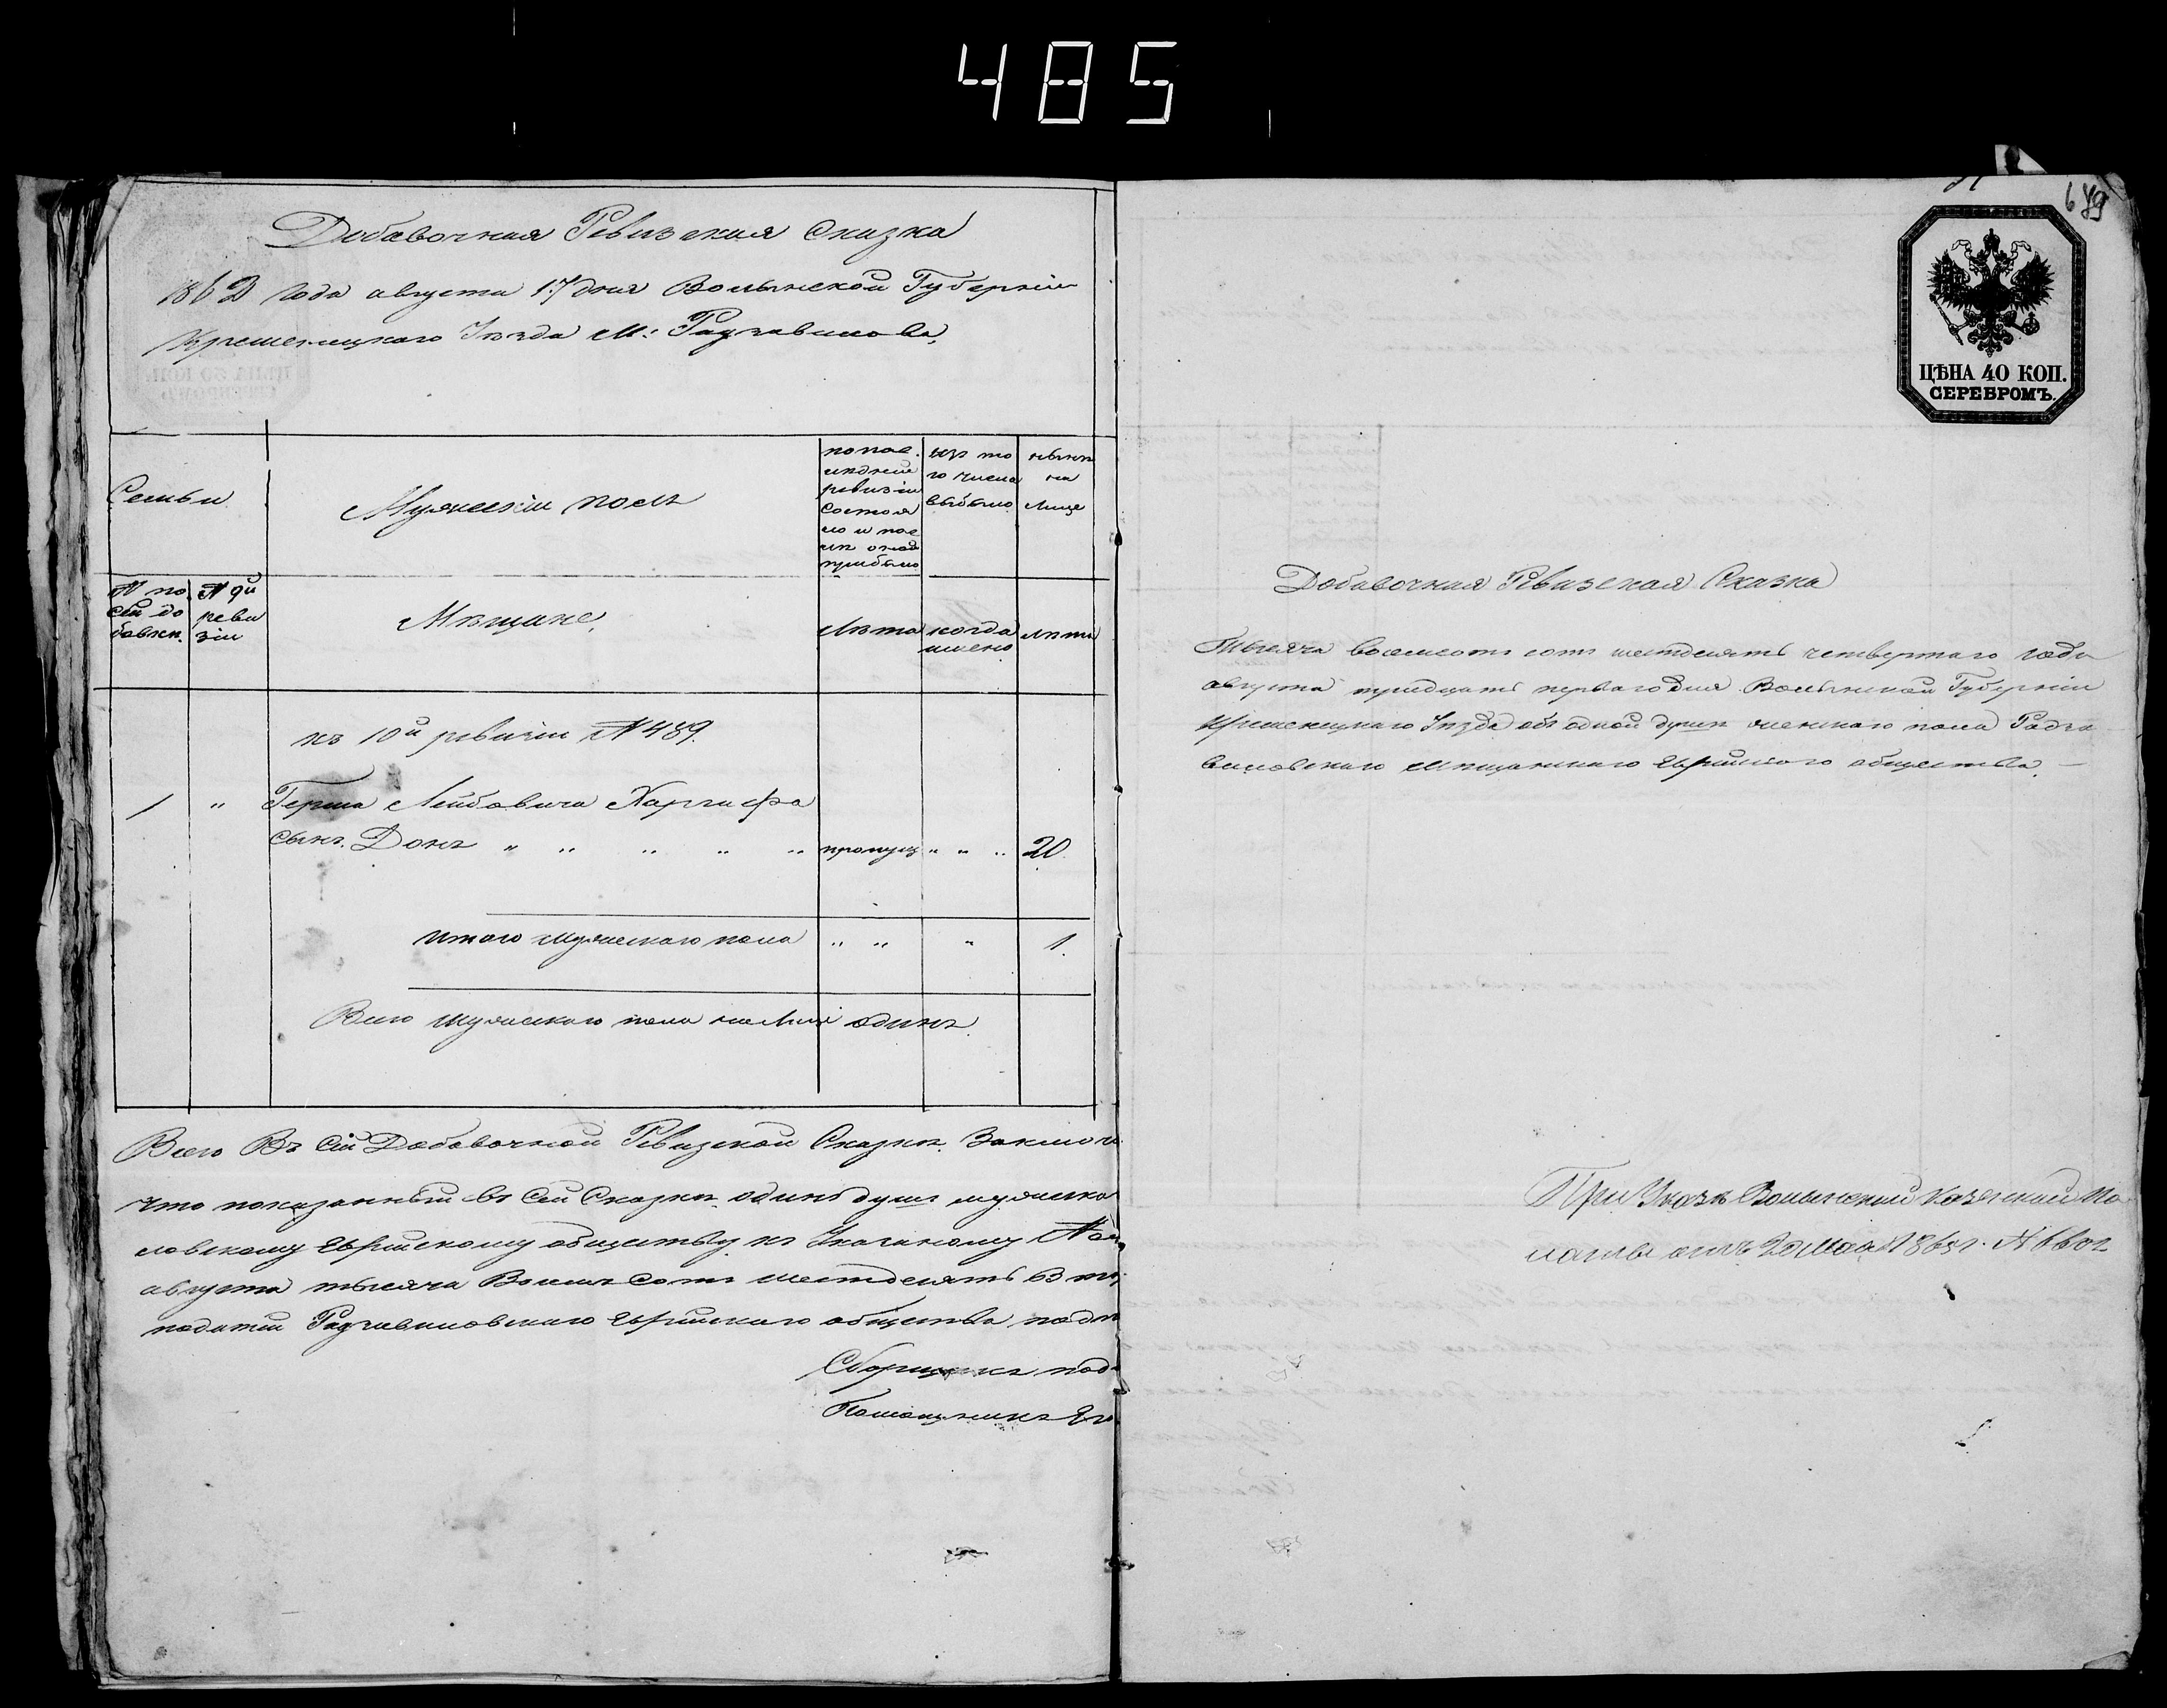 485
Добавочная Ревизская Сказка
186 года августа 17 дня Волынской Губерніи
Кременецкаго Уѣзда М: Радзивилова
Семьи
Мужескій полъ
по пос
лѣдней
ревизіи
состоя
ло и пос
лѣ оной
прибыло
изъ то
го числа
выбыло
нынѣ
на
лице
№ по
сей до
бавкѣ
№ 9й
реви
зіи
Мѣщане
Лѣта
когда
именно
лѣта
къ 10й ревизіи № 489.
1 " Герша Лейбовича
сынъ Донъ " " " " " пропущ " " " 20
Итого мужескаго пола " " " 1
Всего мужескаго пола на лице одинъ
Всего Въ сей Добавочной Ревизской Сказкѣ Заключ
что показанный въ сей Сказкѣ одинъ душъ мужеска
ловскому Еврейскому обществу по Указаному
августа тысяча Восемь Сотъ шестдесятъ
податей Радзивиловскаго Еврейскаго общества
Сборщикъ под
Помощникъ Его
689
ЦѢНА 40 КОП.
СЕРЕБРОМЪ.
Добавочная Ревизская Сказка
Тысяча восемсотъ сотъ шестдесятъ четвертаго года
августа тридцать перваго дня Волынской Губерніи
Кременецкаго Уѣзда объ одной душѣ женскаго пола Радзи
виловскаго мѣщанскаго Еврейскаго общества
При Указѣ Волынской Казенной Па
латы отъ 20 Мая 186 г. №